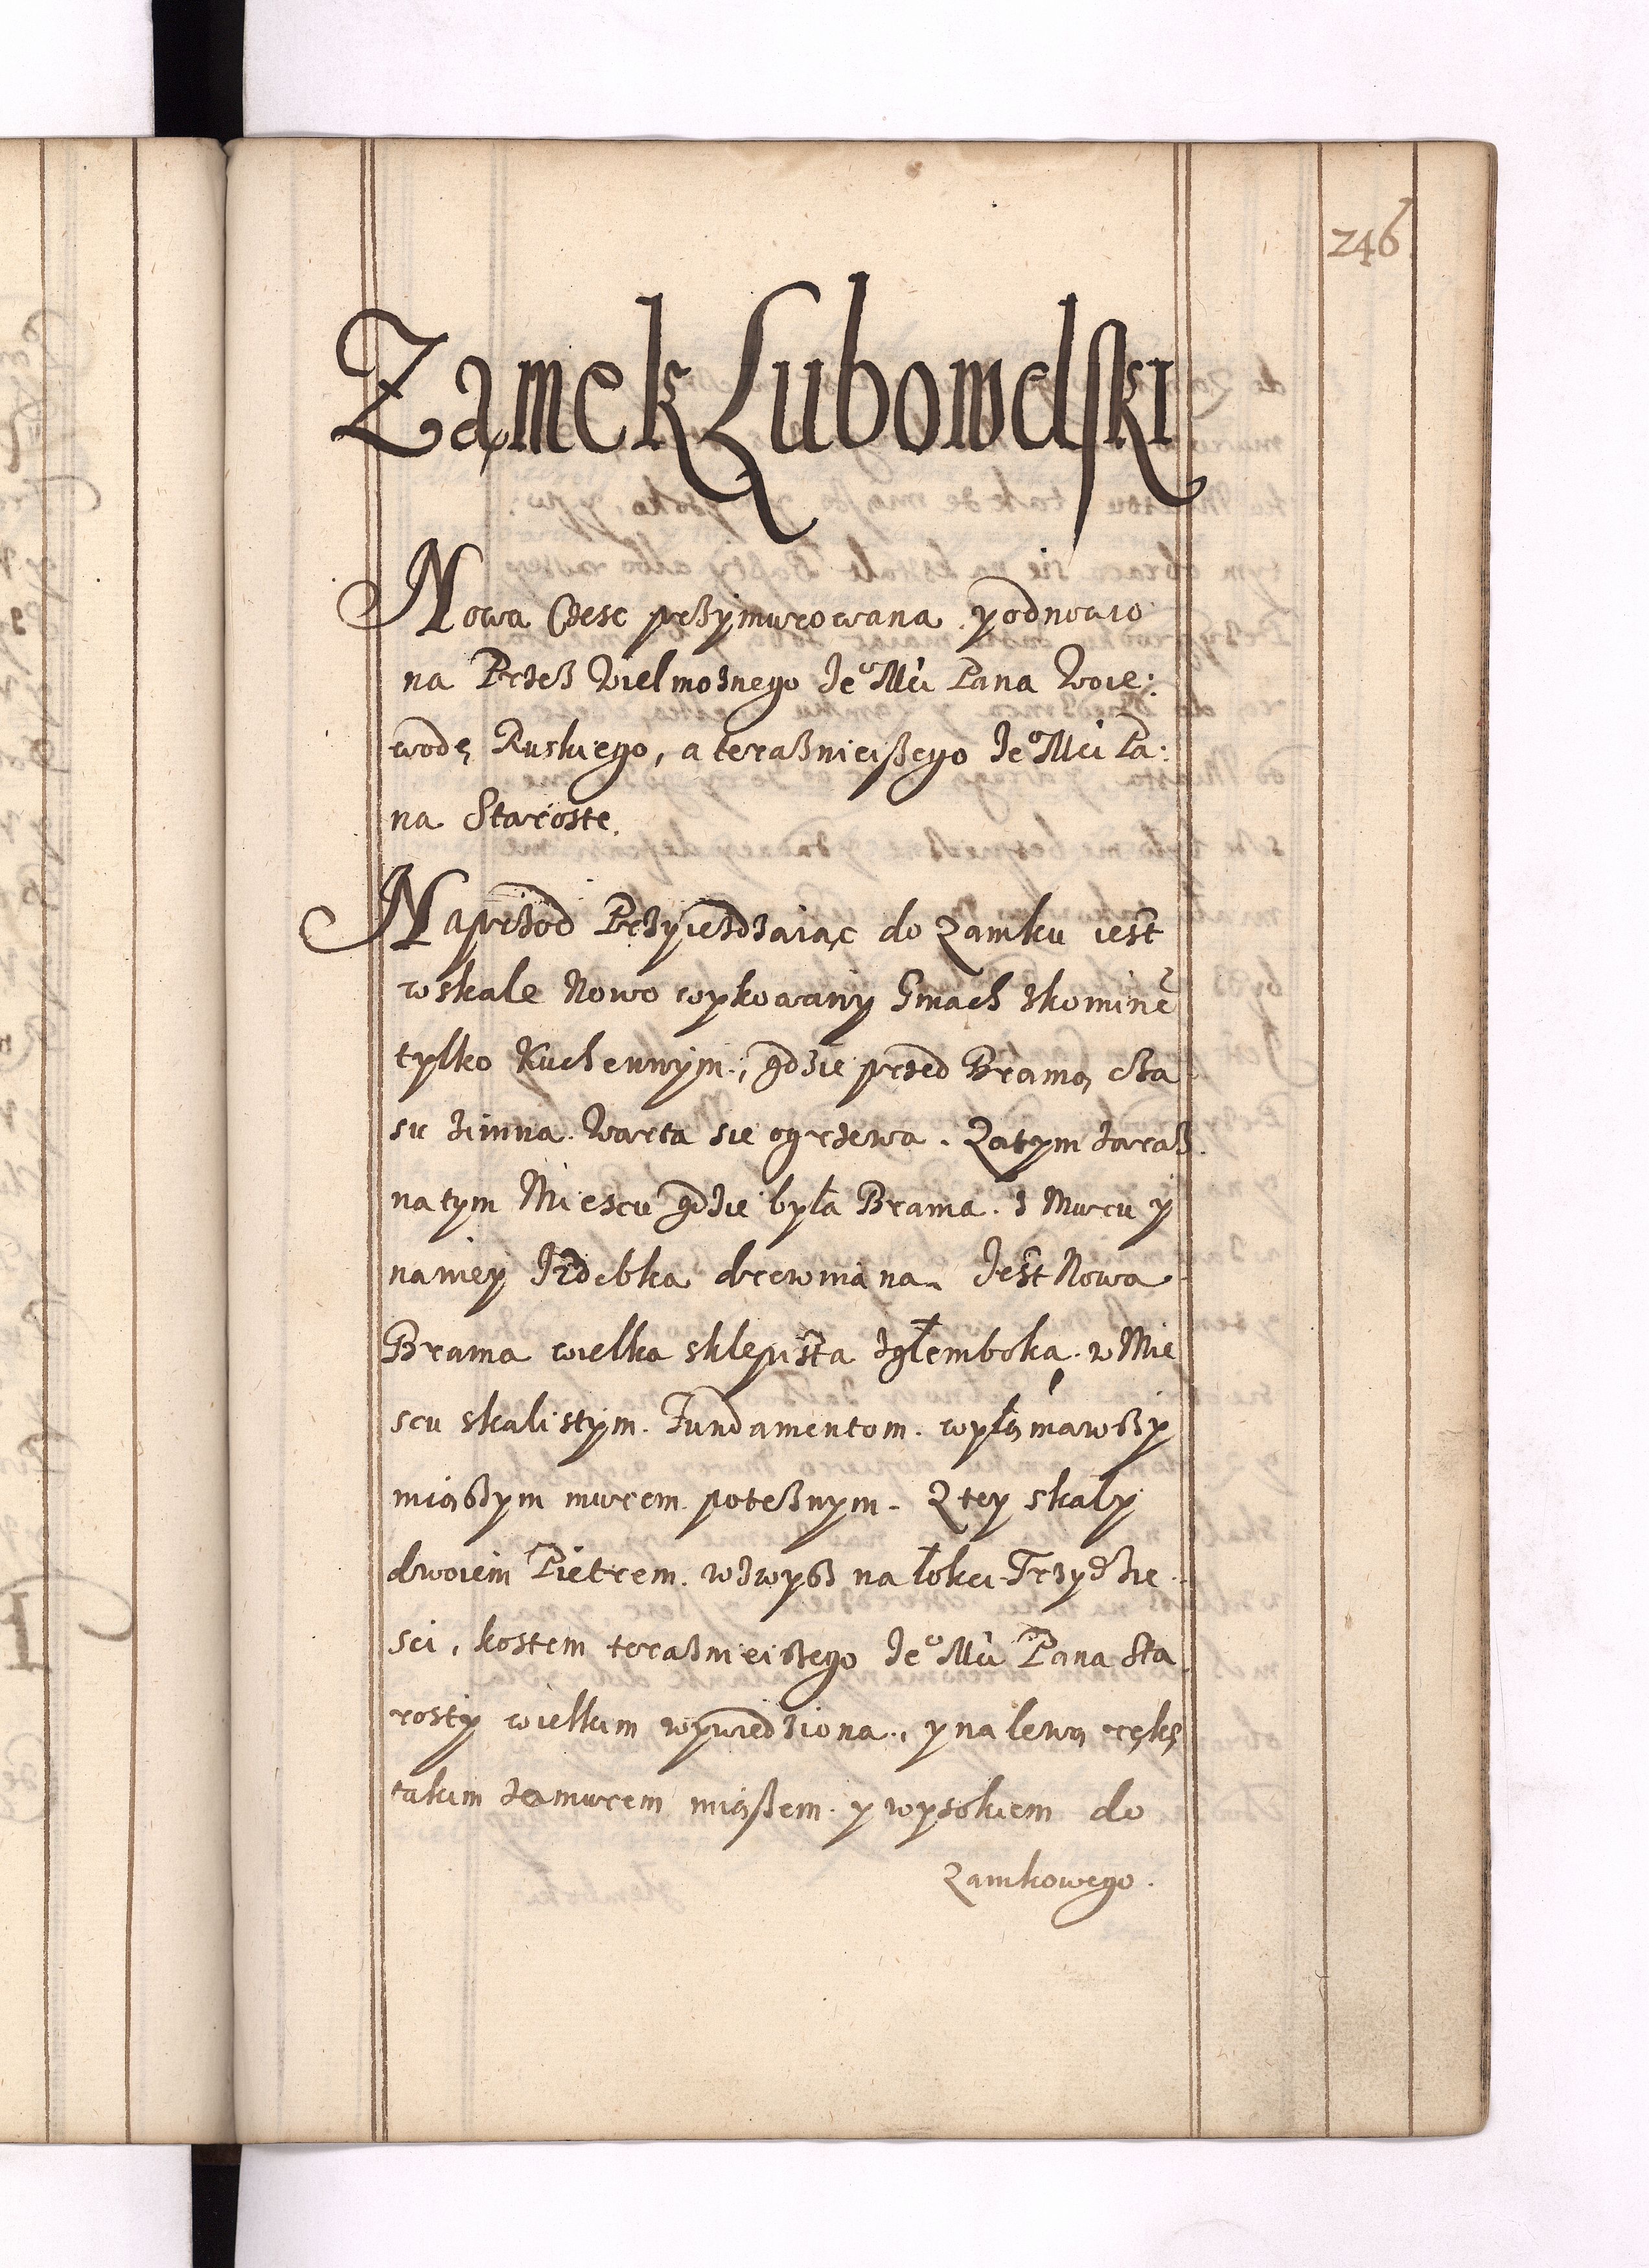 246
Zamek Lubowelski
Nowa Częsc przÿmurowana y odnowio
na Przeß Wielmożnego Jeº Mći Pana Woie:
wodę Ruskiego, a teraßnieißego Jeº Mći Pa:
na Staroste.
Naprzod Przyieżdzaiąc do Zamku iest
w skale Nowo wykowany Gmach zkominẽ
tylko Kuchennÿm, gdzie przed Bramą cza
su zimna Warta sie ogrzewa. Zatym zaraz
na tym Miescu gdzie była Brama z Muru ÿ
na nieÿ Izdebka drewniana Jest Nowa
Brama wielka sklepista zgłemboka w Mie
scu skalistÿm Fundamentom wyłąmawszy
miąszym murem poteżnym. Z tey skały
dwoiem Pietrem wzwysz na łokci Trzydzie
sci, kostem teraznieiszego Jeº Mći Pana Sta
rosty wielkim wywiedziona, y na lewą rękę
takim ze murem miąßem y wysokiem do
Zamkowego.